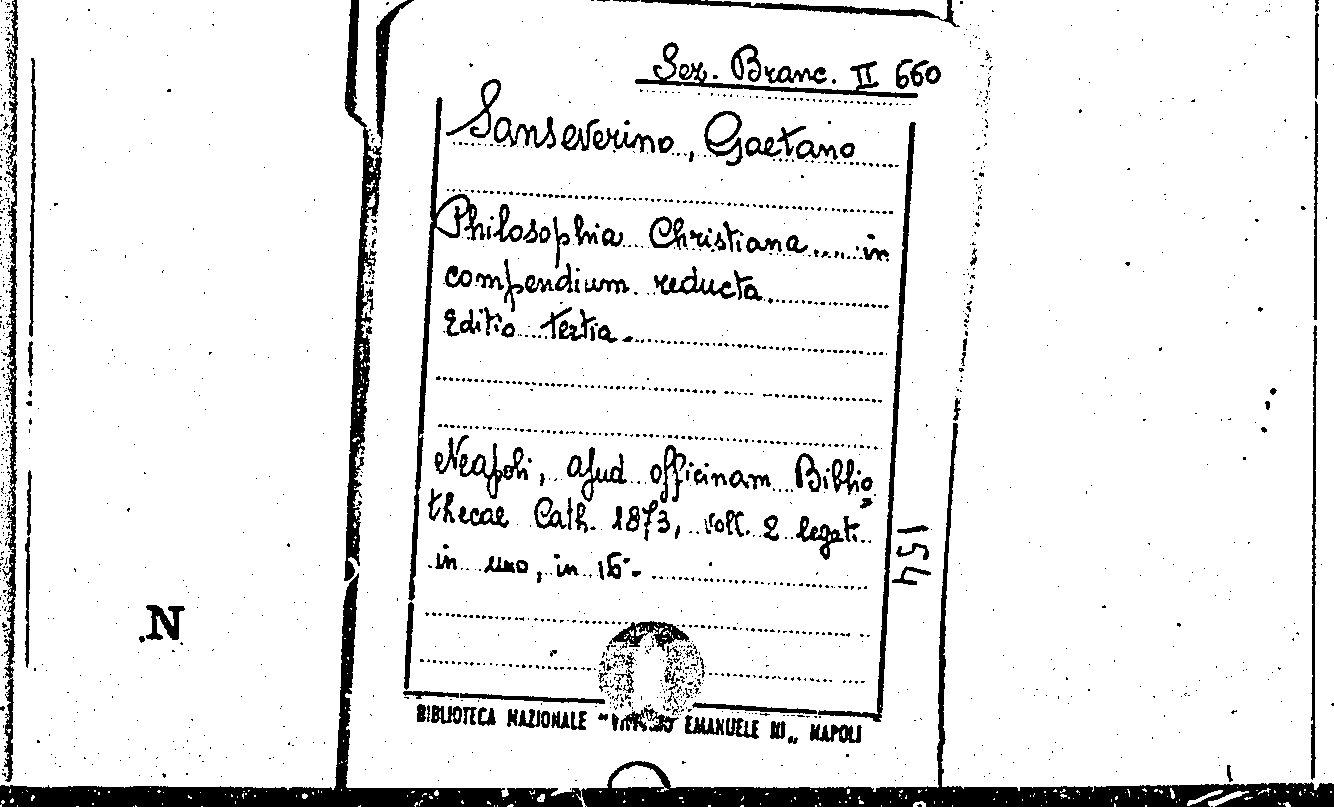 Sez. Branc. II 660
Sanseverino, Gaetano
Philosophia Christiana..... in
compendium reducta.
Editio tertia.
Neapoli, apud officinam Biblio=
thecae Cath. 1873, voll. 2 legati
in uno, in 16°-
154
N
BIBLIOTECA NAZIONALE "VITTORIO EMANUELE III„ NAPOLI